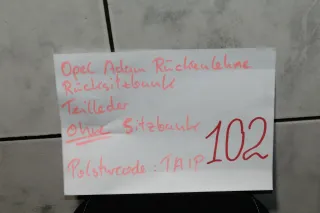 Opel Adam Rückenlehne
Rücksitzbank
Teilleder
Ohne Sitzbank
102
Polstercode: TAIP